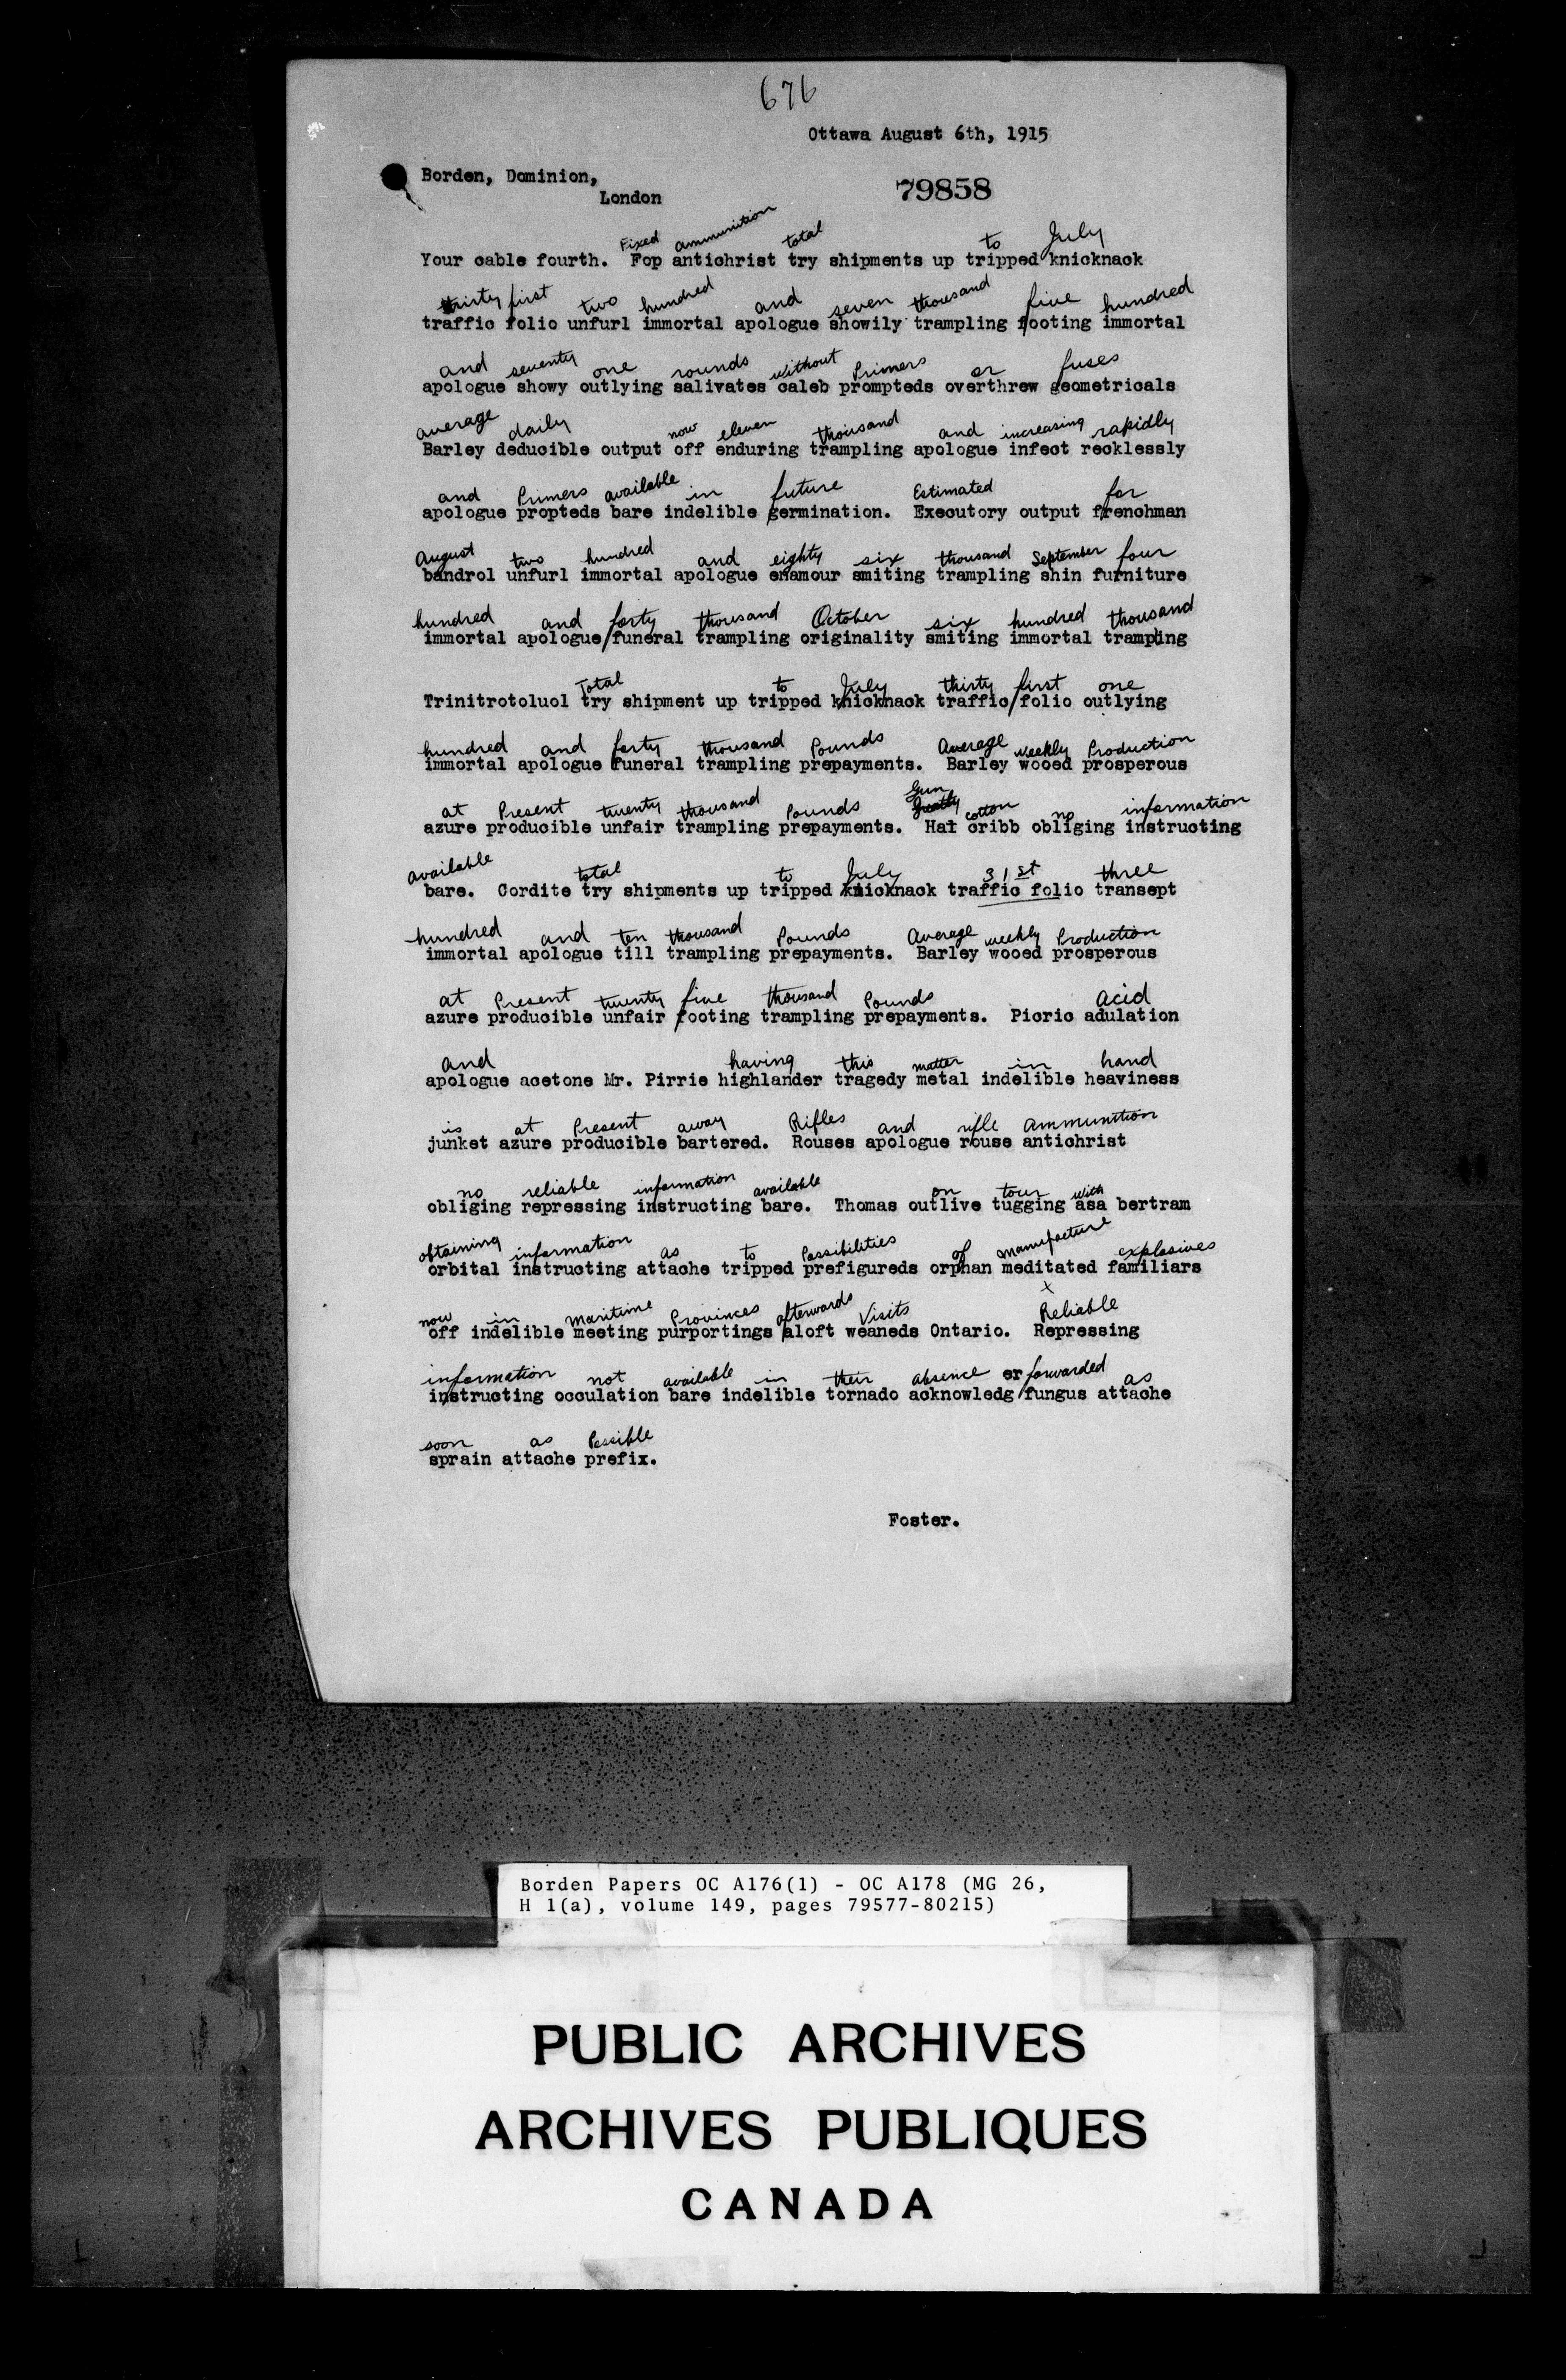 676
Ottawa August 6th, 1915
Borden, Dominion,
London
79858
Fixed ammunition total to July
Your cable fourth. Fop antichrist try shipments up tripped knicknack
thirty first two hundred and seven thousand five hundred
traffic folio unfurl immortal apologue showily trampling footing immortal
and seventy one rounds without Primers or fuses
apologue showy outlying salivates caleb prompteds overthrew geometricals
average daily now eleven thousand and increasing rapidly
Barley deducible output off enduring trampling apologue infect recklessly
and Primers available in future Estimated for
apologue propteds bare indelible germination. Executory output frenchman
August two hundred and eighty six thousand September four
bandrol unfurl immortal apologue enamour smiting trampling shin furniture
hundred and forty thousand October six hundred thousand
immortal apologue/funeral trampling originality smiting immortal trampling
Total to July thirty first one
Trinitrotoluol try shipment up tripped knicknack traffic/folio outlying
hundred and forty thousand Pounds Average weekly Production
immortal apologue funeral trampling prepayments. Barley wooed prosperous
at Present twenty thousand Pounds Gun cotton no information
azure producible unfair trampling prepayments. Hat cribb obliging instructing
available total to July 31st three
bare. Cordite try shipments up tripped knicknack traffic folio transept
hundred and ten thousand Pounds Average weekly Production
immortal apologue till trampling prepayments. Barley wooed prosperous
at Present twenty five thousand Pounds acid
azure producible unfair footing trampling prepayments. Picric adulation
and having this matter in hand
apologue acetone Mr. Pirrie highlander tragedy metal indelible heaviness
is at Present away Rifles and rifle ammunition
junket azure producible bartered. Rouses apologue rouse antichrist
no reliable information available on tour with
obliging repressing instructing bare. Thomas outlive tugging asa bertram
obtaining information as to Possibilities of manufacture explosives
orbital instructing attache tripped prefigureds orphan meditated familiars
x
now in maritime Provinces afterwards Visits Reliable
off indelible meeting purportings aloft weaneds Ontario. Repressing
information not available in their absence er forwarded as
instructing occulation bare indelible tornado acknowledg/fungus attache
soon as Possible
sprain attache prefix.
Foster.
Borden Papers OC A176(1) - OC A178 (MG 26,
H 1(a), volume 149, pages 79577-80215)
PUBLIC ARCHIVES
ARCHIVES PUBLIQUES
CANADA